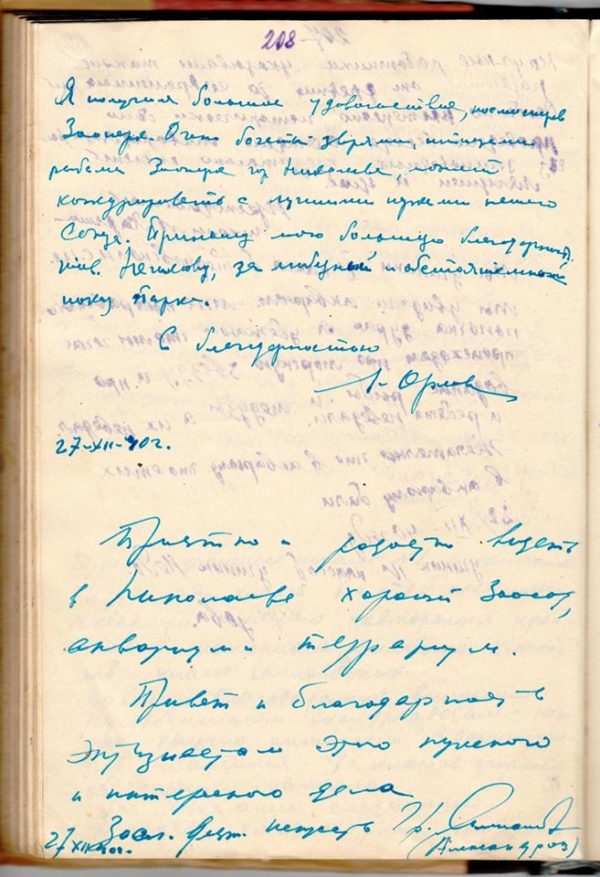 208
Я получил большое удовольствие, посмотрев
Зоопарк. Очно богатый зверями, питицами
рыбами Зоопарк гор. Николаева, может
конкурировать с лучшими парками нашего
Союза. Приношу мою большую благодарность
за любезный и обстоятельный
показ Парка.
С благодарностью
Орлов
27-XII-40г.
Приятно и радостно видеть
в Николаеве хороший Зоосад,
аквариум и террариум.
Привет и благодарность
энтузиастам этого нужного
и интересного дела
Засл. арт. респуб. Гр.
27 XII 40г. (Александров)